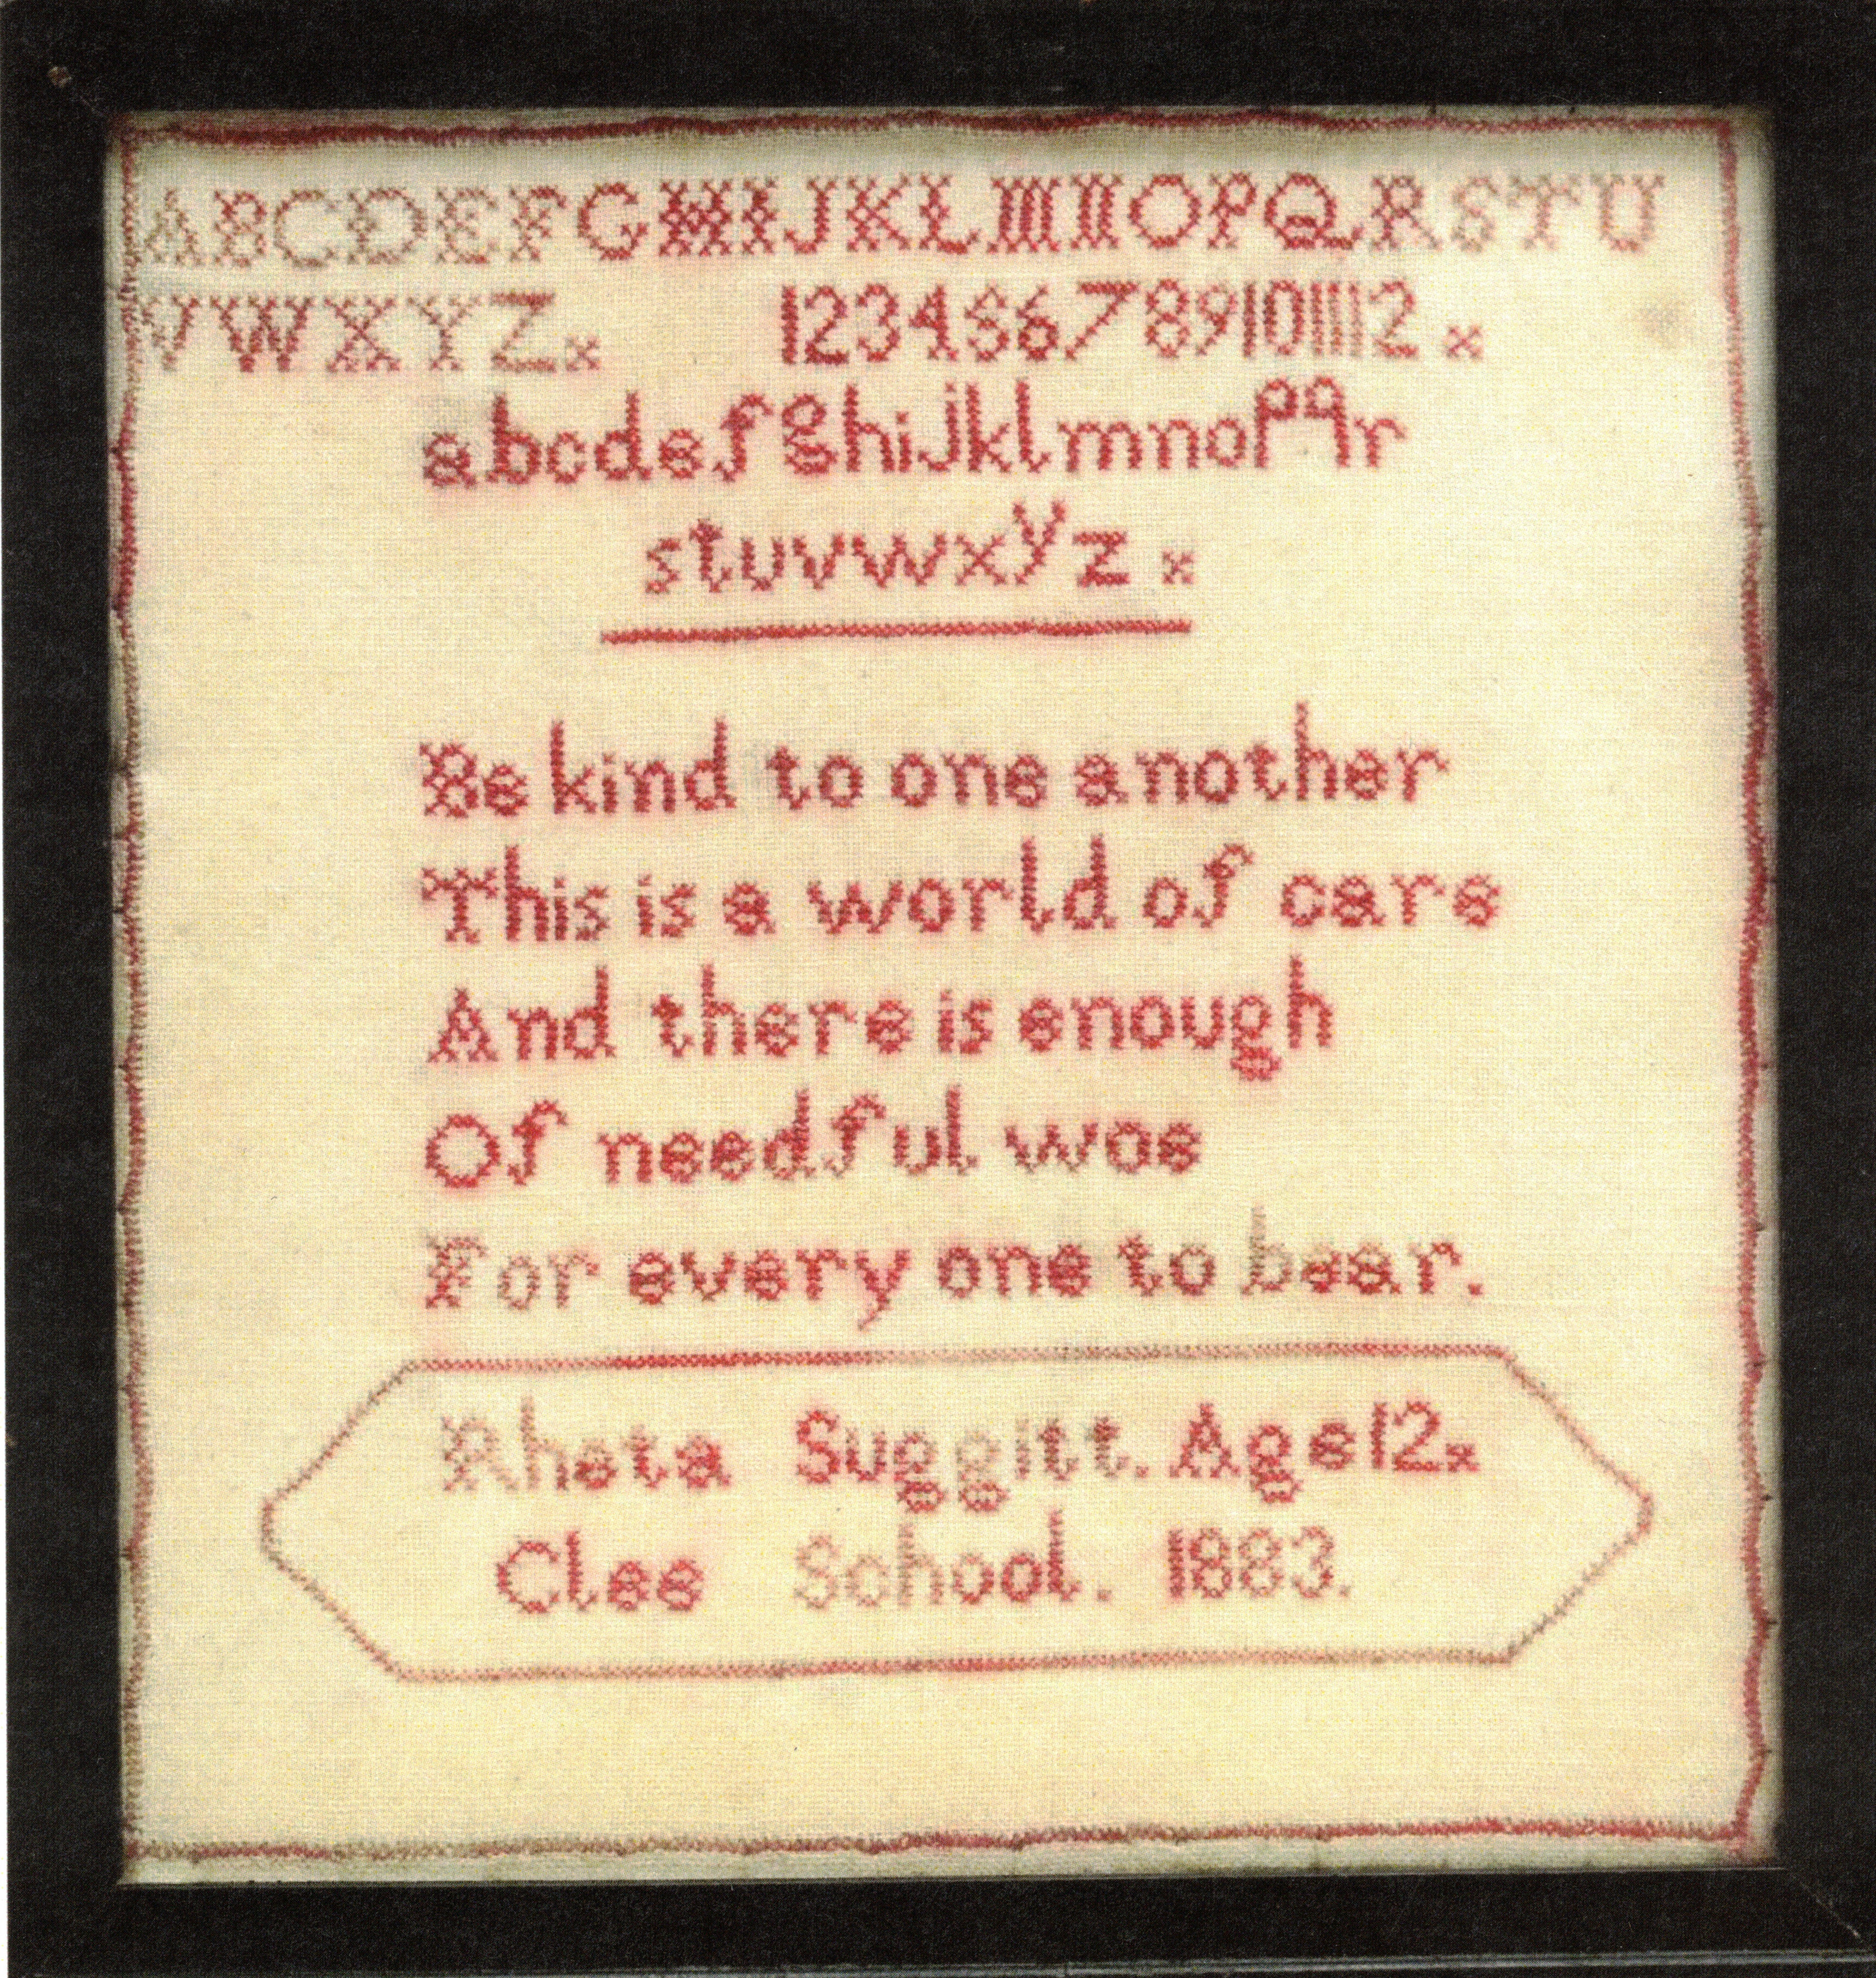 ABCDEFGHIJKLMNOPQRSTU
VWXYZx 123456789101112 x
abcdefghijklmnopqr
stuvwxyz x
Be kind to one another
This is a world of care
And there is enough
Of needful woe
For every one to bear.
Rheta Suggitt. Age 12x
Clee School. 1883.